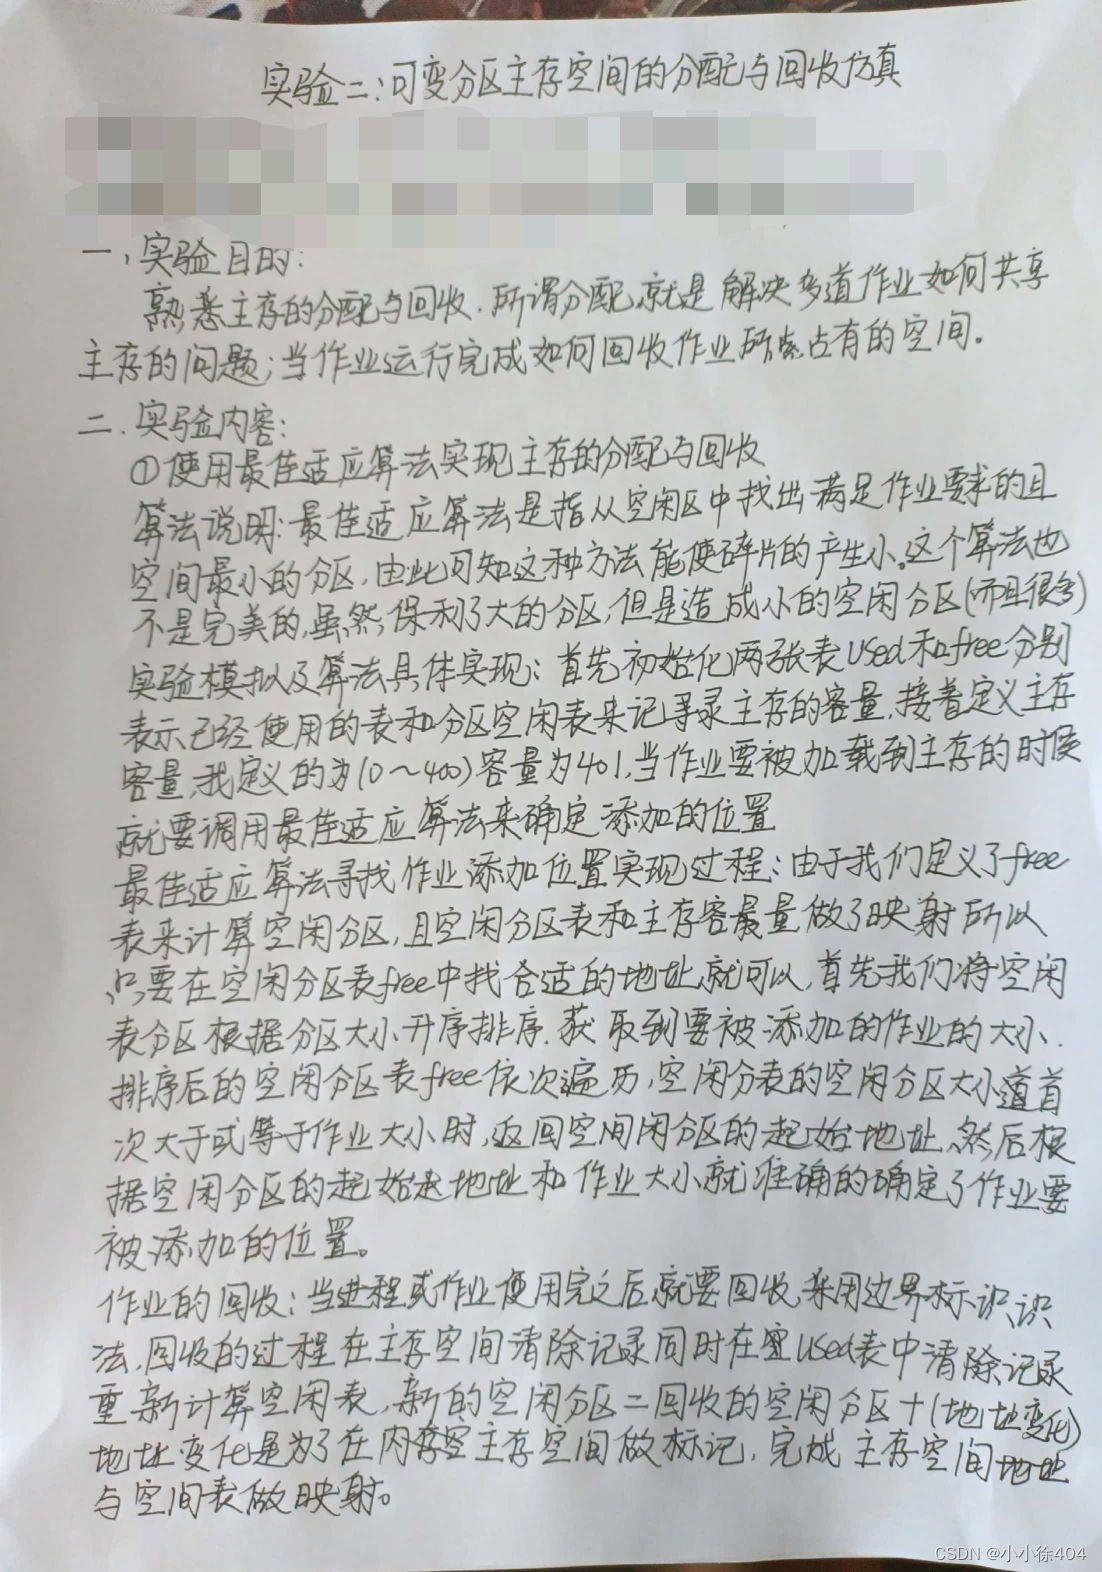 实验二:可变分区主存空间的分配与回收仿真
一、实验目的:
熟悉主存的分配与回收.所谓分配,就是解决多道作业如何共享
主存的问题;当作业运行完成如何回收作业所占有的空间。
二.实验内容:
①使用最佳适应算法实现主存的分配与回收
算法说明:最佳适应算法是指从空闲区中找出满足作业要求的且
空间最小的分区,由此可知这种方法能使碎片的产生小。这个算法也
不是完美的,虽然保利了大的分区,但是造成小的空闲分区(而且很多)
实验模拟及算法具体实现:首先初始化两张表used和free分别
表示已经使用的表和分区空闲表来记录主存的容量,接着定义主存
容量,我定义的为(0~400)容量为401,当作业要被加载到主存的时候
就要调用最佳适应算法来确定添加的位置
最佳适应算法寻找作业添加位置实现过程:由于我们定义了free
表来计算空闲分区,且空闲分区表和主存容量做了映射所以
只要在空闲分区表free中找合适的地址就可以,首先我们将空闲
表分区根据分区大小升序排序.获取到要被添加的作业的大小.
排序后的空闲分区表free依次遍历,空闲分表的空闲分区大小首
次大于或等于作业大小时,返回空间闲分区的起始地址,然后根
据空闲分区的起始地址和作业大小就准确的确定了作业要
被添加的位置。
作业的回收:当进程或作业使用完之后,就要回收,采用边界标识识
法,回收的过程在主存空间清除记录同时在used表中清除记录
重新计算空闲表,新的空闲分区=回收的空闲分区+(地址变化)
地址变化是为了在内存主存空间做标记,完成主存空间
与空间表做映射。
CSDN @小小徐404